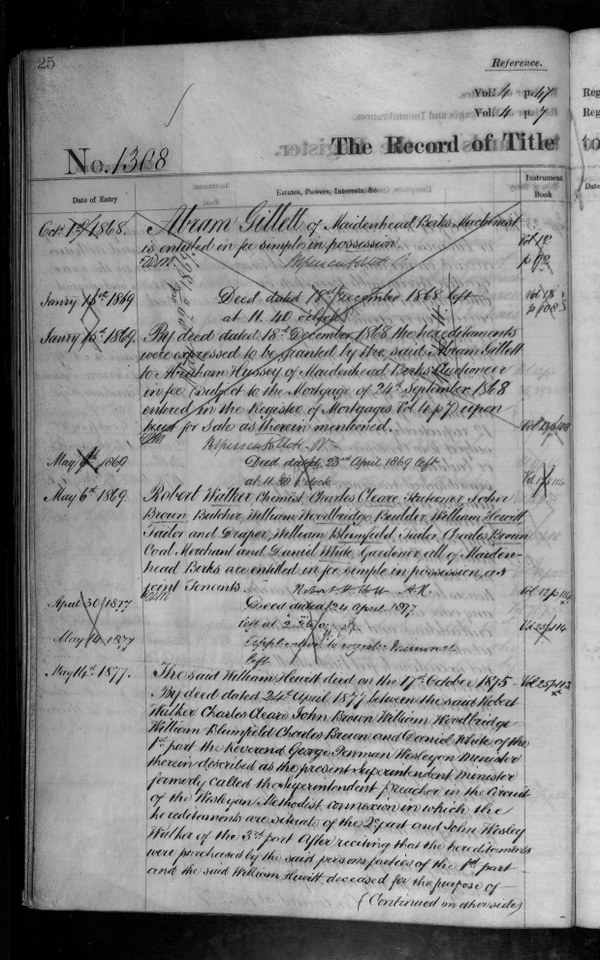 25
Reference.
Vol. 4 p. 47
Vol. 4 p. 7
The Record of Title
to
No. 1308
Date of Entry
Estates, Powers, Interests, &c.
Instrument
Book
Reg
Reg
Octr 1868.
Abram Gillett of Maidenhead Berks Machinist
is entitled in fee simple in possession.
Vol 12
Janry 15th 1869
Deed dated 18th December 1868 left
at 11. 40 o'clock
Janry 15th 1869.
By deed dated 18th December 1868 the hereditaments
were expressed to be granted by the said Abram Gillett
to Abraham Hussey of Maidenhead Berks Auctioneer
in fee (subject to the Mortgage of 24th September 1868
entered in the Register of Mortgages Vol 4 p 7) upon
trust for Sale as therein mentioned.
May 6th 1869
Deed dated 23rd April 1869 left
at 11. o'clock
May 6th 1869
Robert Walker Chemist Charles Cleare Stationer John
Brown, Butcher, William Woodbridge Builder, William Hewitt
Tailor and Draper, William Blumfield, Tailor Charles Brown
Coal Merchant and Daniel White Gardener all of Maiden-
head Berks are entitled in fee simple in possession, as
joint Tenants.
Vol 17 p 114
April 30/1877
Deed dated 24 April 1877
left at
Vol 25 p 114
May 14 1877
Application to register
left
May 14th 1877.
The said William Hewitt died on the 17th October 1875
Vol 25 p 113
By deed dated 24th April 1877 between the said Robert
Walker Charles Cleare John Brown William Woodbridge
William Blumfield Charles Brown and Daniel White of the
1st part the Reverend George Penman Wesleyan Minister
therein described as the present Superintendent Minister
formerly called the Superintendent preacher in the Circuit
of the Wesleyan Methodist connexion in which the
hereditaments are situate of the 2nd part and John Wesley
Walker of the 3rd part After reciting that the hereditaments
were purchased by the said persons parties of the 1st part
and the said William Hewitt deceased for the purpose of
(Continued on other side)